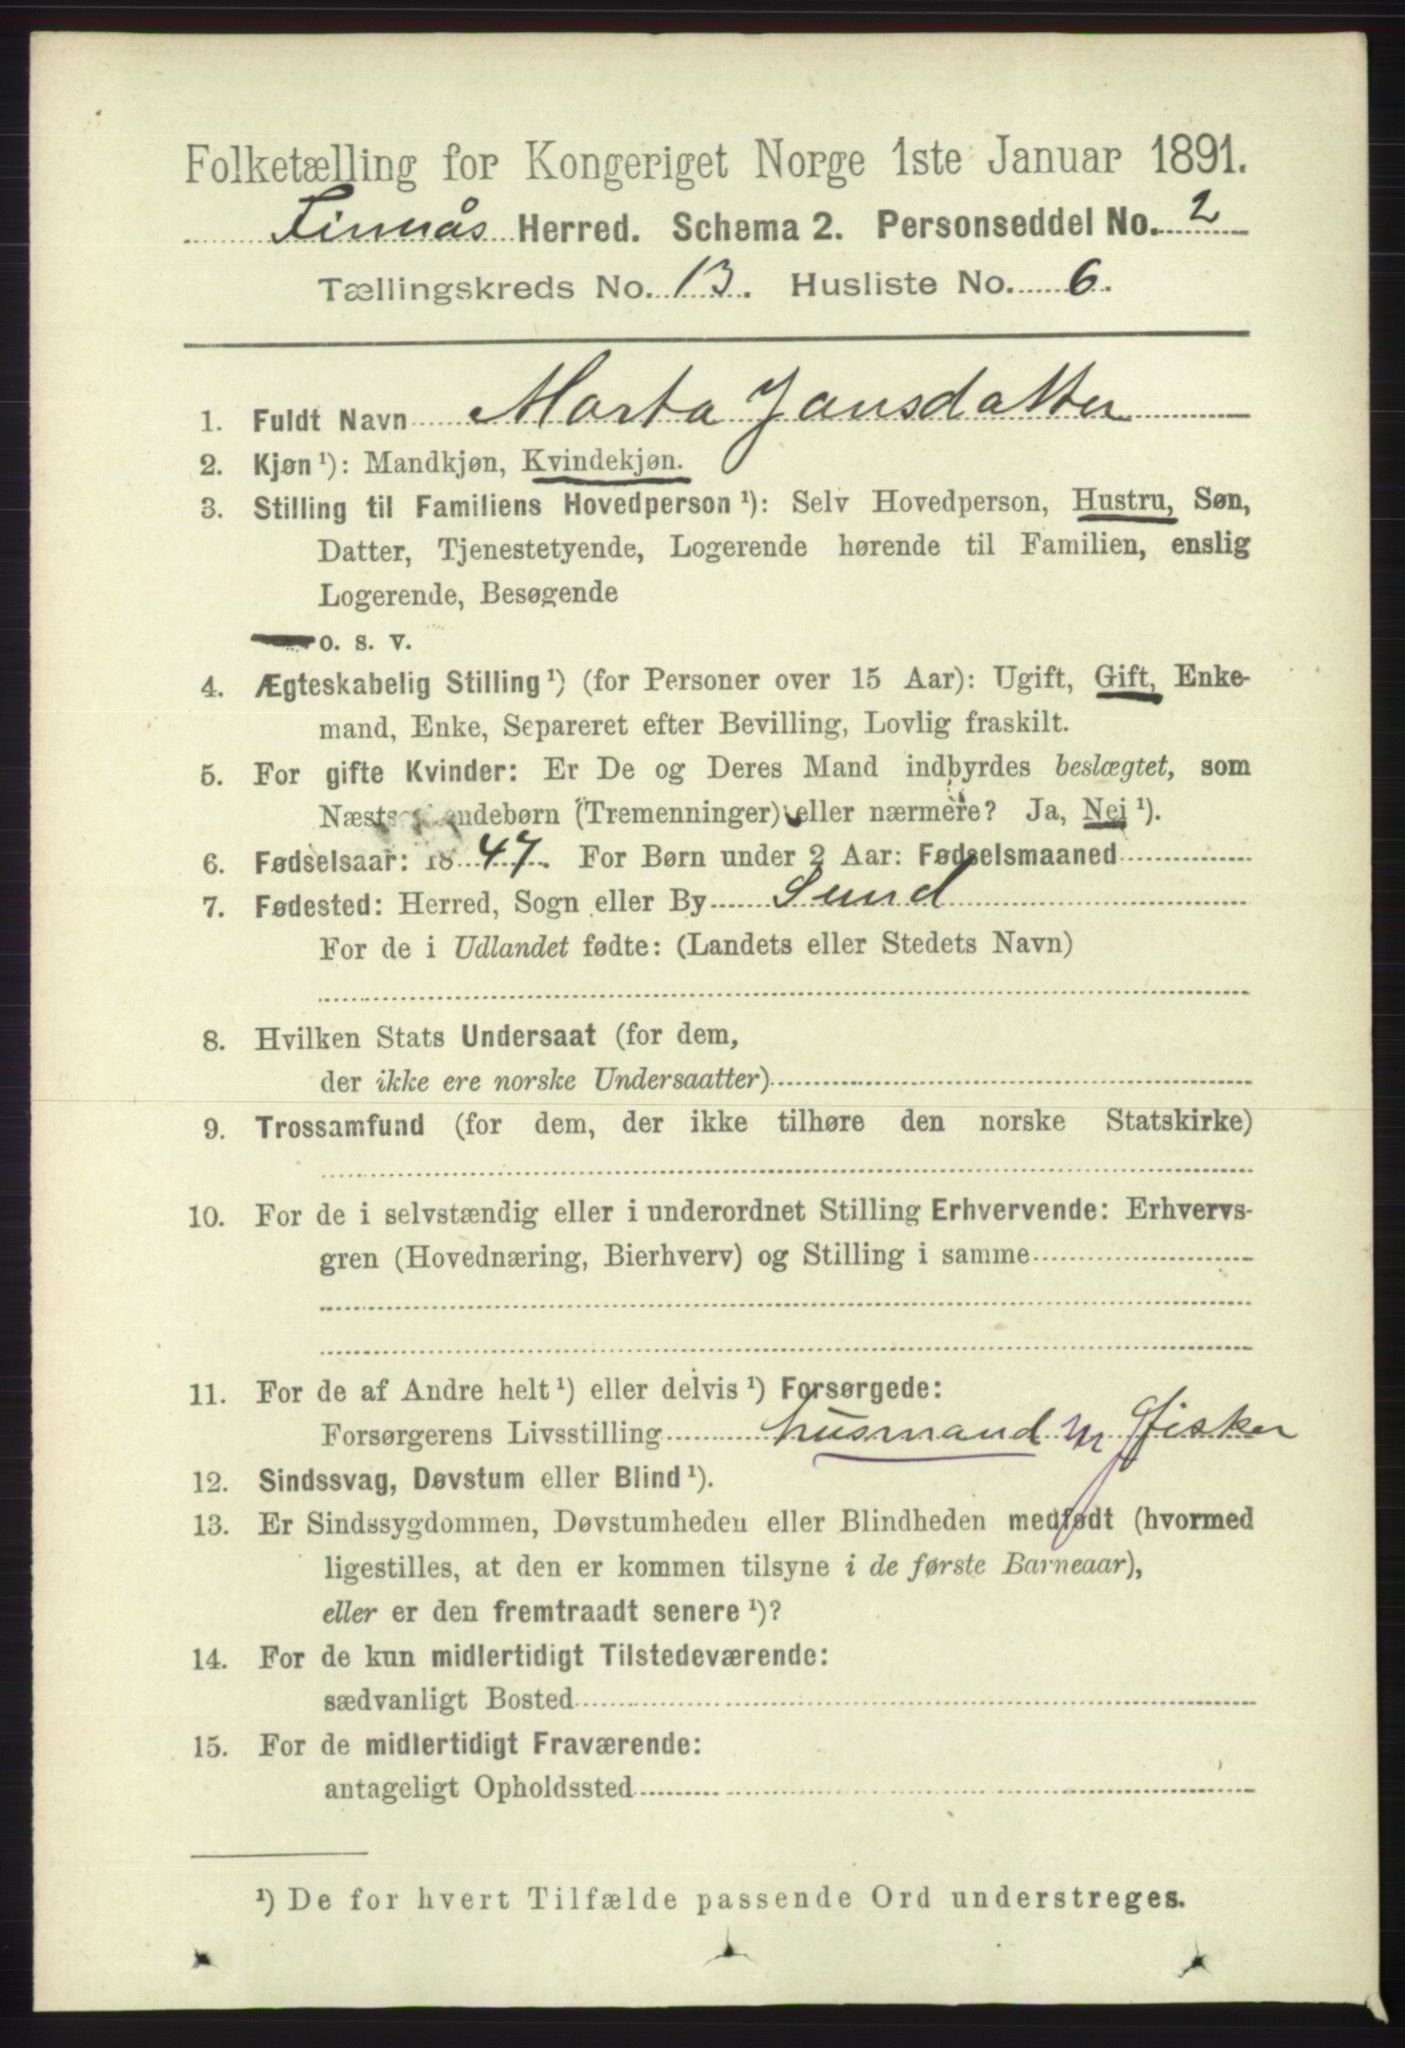 Folketælling for Kongeriget Norge 1ste Januar 1891.
Finnås Herred. Schema 2. Personseddel No. 2
Tællingskreds No. 13. Husliste No. 6.
1. Fuldt Navn Marta Jansdatter
2. Kjøn ¹): Mandkjøn, Kvindekjøn.
3. Stilling til Familiens Hovedperson ¹): Selv Hovedperson, Hustru, Søn,
Datter, Tjenestetyende, Logerende hørende til Familien, enslig
Logerende, Besøgende
o. s. v.
4. Ægteskabelig Stilling ¹) (for Personer over 15 Aar): Ugift, Gift, Enke-
mand, Enke, Separeret efter Bevilling, Lovlig fraskilt.
5. For gifte Kvinder: Er De og Deres Mand indbyrdes beslægtet, som
Næstsøskendebørn (Tremenninger) eller nærmere? Ja, Nej ¹).
6. Fødselsaar: 1847. For Børn under 2 Aar: Fødselsmaaned
7. Fødested: Herred, Sogn eller By Sund
For de i Udlandet fødte: (Landets eller Stedets Navn)
8. Hvilken Stats Undersaat (for dem,
der ikke ere norske Undersaatter)
9. Trossamfund (for dem, der ikke tilhøre den norske Statskirke)
10. For de i selvstændig eller i underordnet Stilling Erhvervende: Erhvervs-
gren (Hovednæring, Bierhverv) og Stilling i samme
11. For de af Andre helt ¹) eller delvis ¹) Forsørgede:
Forsørgerens Livsstilling husmand m fisker
12. Sindssvag, Døvstum eller Blind ¹).
13. Er Sindssygdommen, Døvstumheden eller Blindheden medfødt (hvormed
ligestilles, at den er kommen tilsyne i de første Barneaar),
eller er den fremtraadt senere ¹)?
14. For de kun midlertidigt Tilstedeværende:
sædvanligt Bosted
15. For de midlertidigt Fraværende:
antageligt Opholdssted
¹) De for hvert Tilfælde passende Ord understreges.